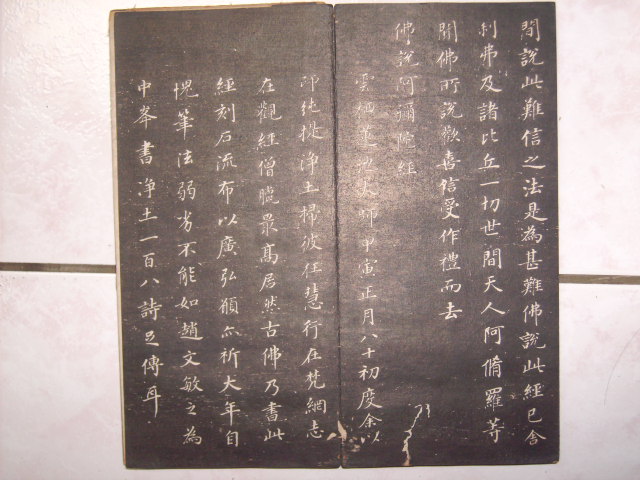 間說此難信之法是為甚難佛說此經已舍
利弗及諸比丘一切世間天人阿脩羅等
聞佛所說歡喜信受作禮而去
佛說阿彌陀經
雲栖蓮池大師甲寅正月八十初度余以
印純提淨土掃彼狂慧行在梵網志
在觀經僧臘最高居然古佛乃書此
經刻石流布以廣弘願亦祈大年自
愧筆法弱劣不能如趙文敏之為
中峯書淨土一百八詩足傳耳